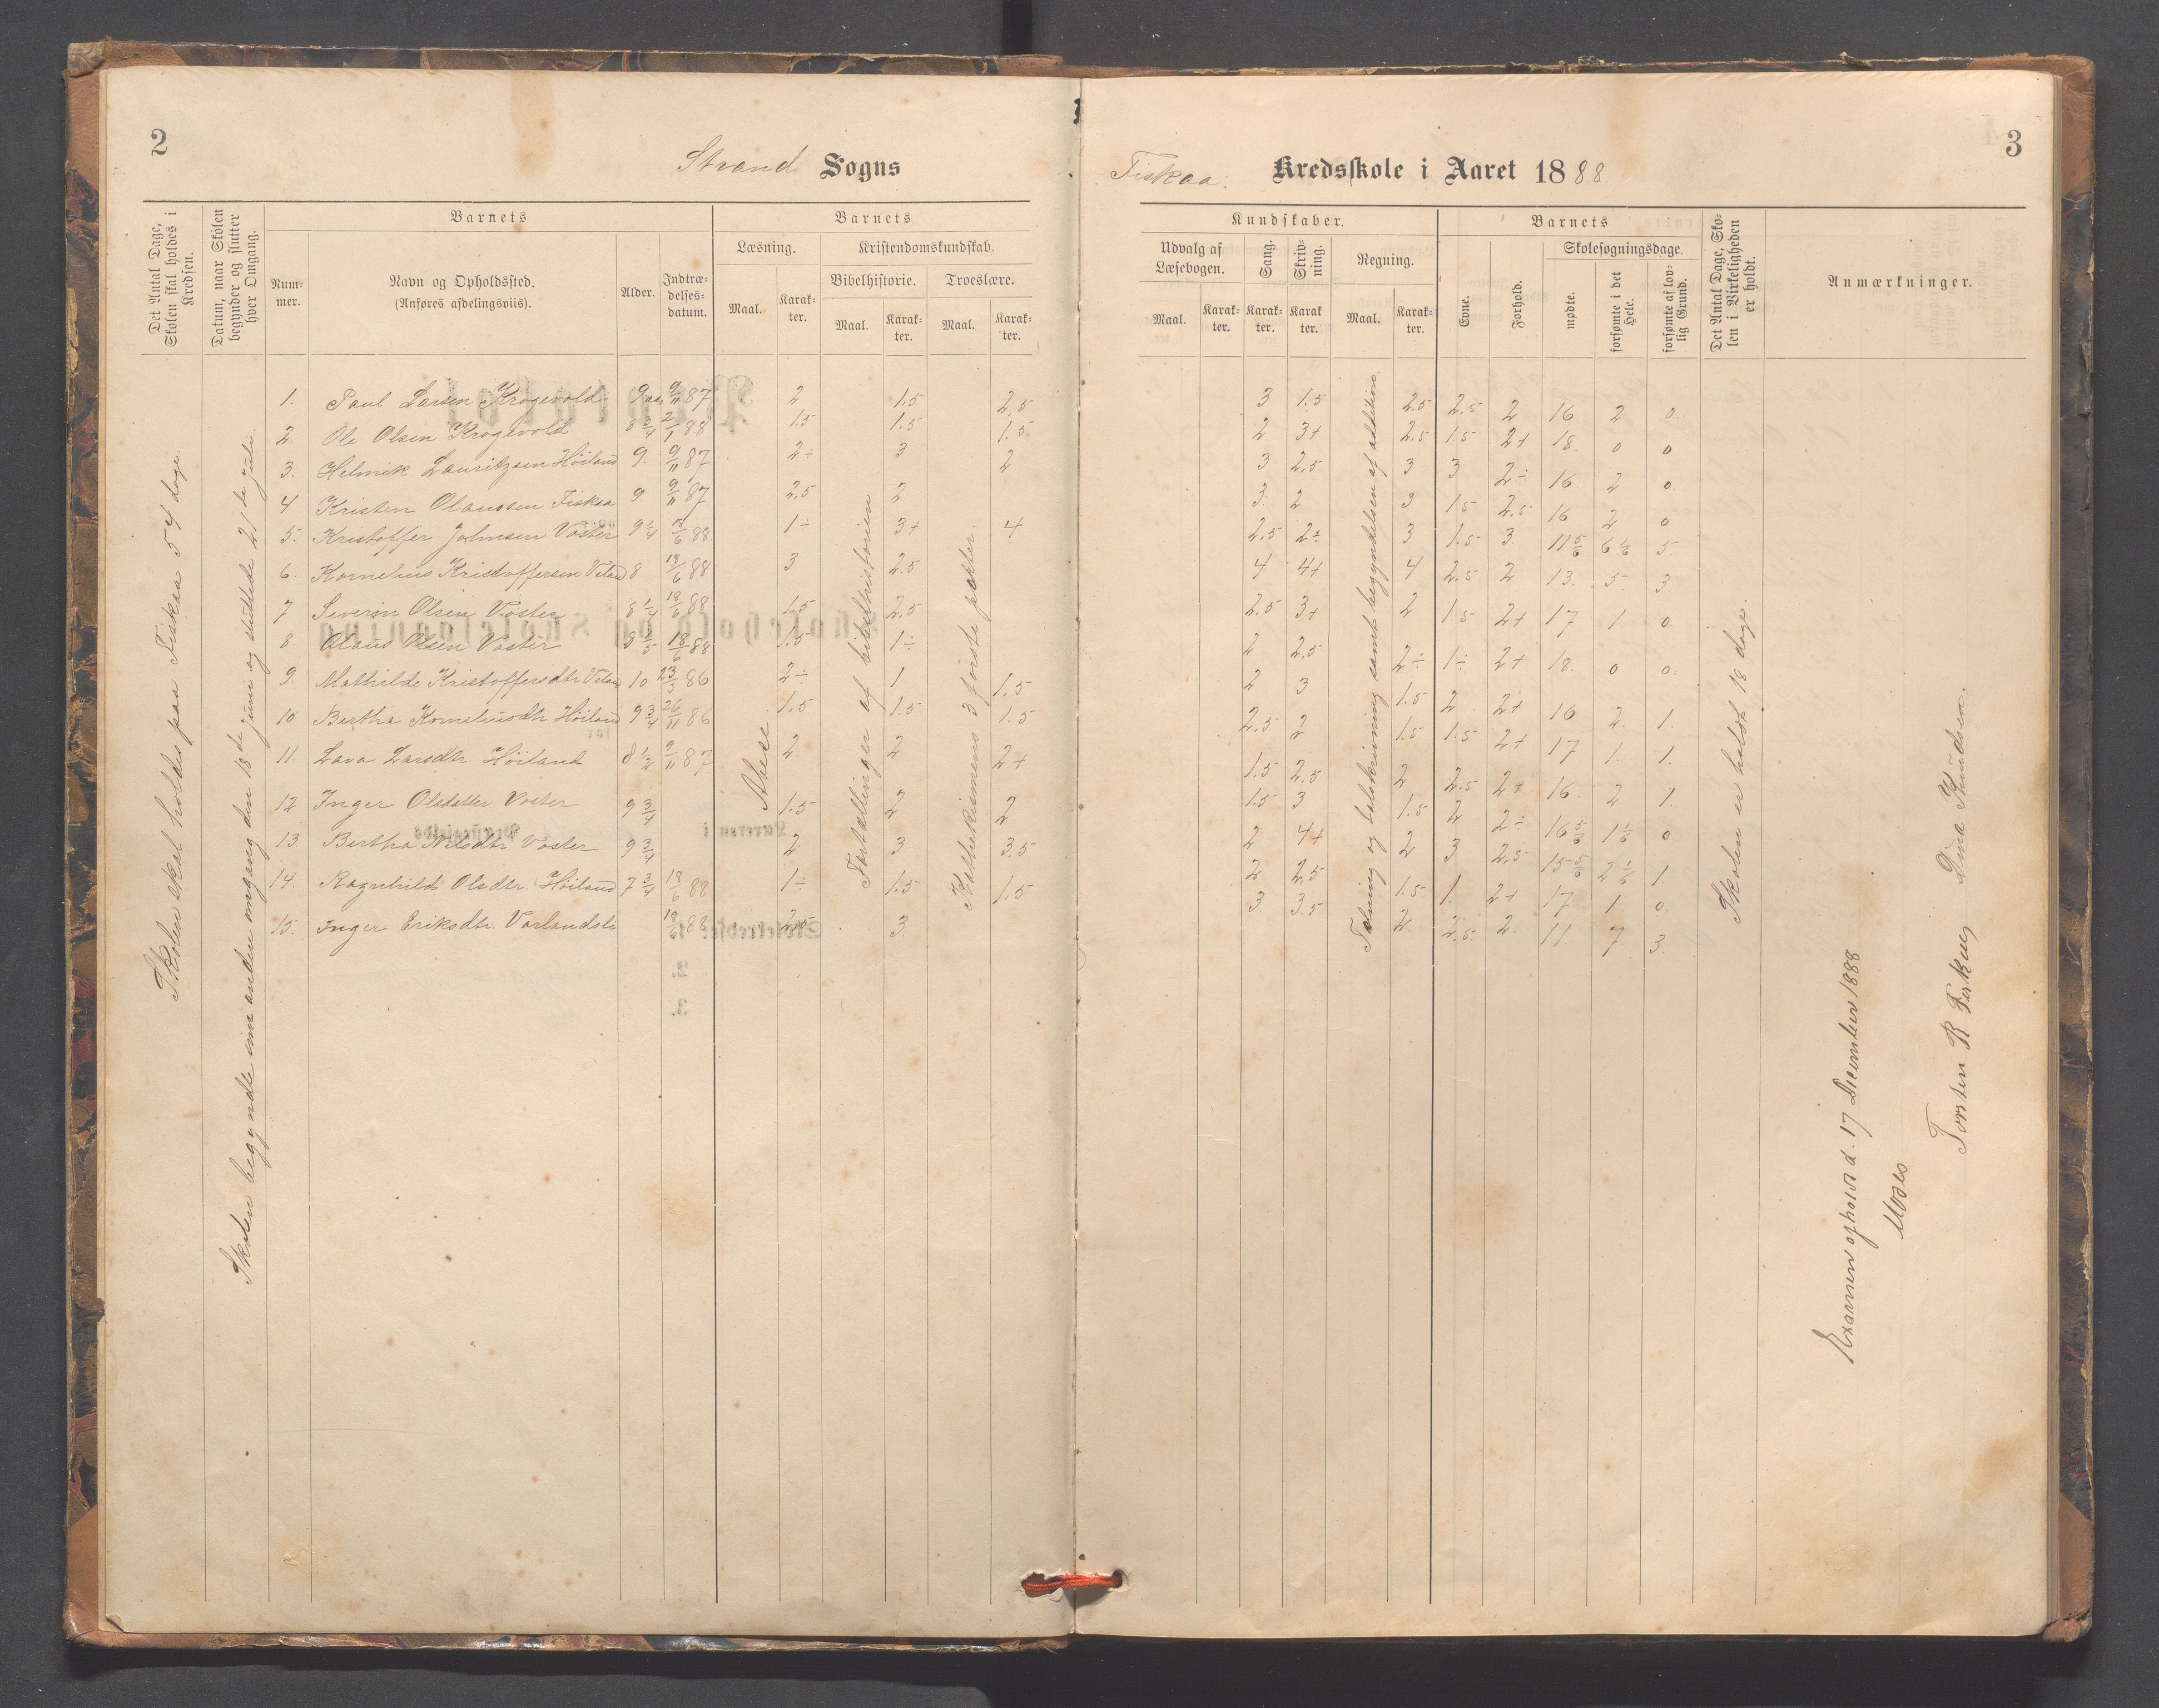 2
Strand Sogns
Det Antal Dage, Skolen skal holdes i Kredsen.
Datum, naar Skolen begynder og slutter hver Omgang.
Barnets
Nummer.
Navn og Opholdssted.
(Anføres afdelingsviis).
Alder.
Indtrædelsesdatum.
Barnets
Læsning.
Kristendomskundskab.
Bibelhistorie.
Troeslære.
Maal.
Karakter.
Maal.
Karakter.
Maal.
Karakter.
Skolen skal holdes paa Fiskaa 54 dage.
Skolen begyndte sin anden omgang den 18de juni og sluttede 21de juli.
Abese
Fortællinger af bibelhistorien
Kathekismens 3 første parter.
1. Paul Larsen Krogevold 9 aar 9/11 87 2 1.5 2.5
2. Ole Olsen Krogevold 8 3/4 2/1 88 1.5 1.5 1.5
3. Helmik Lauritzsen Höiland 9. 9/11 87 2÷ 3 2
4 Kristen Olaussen Fiskaa 9. 9/11 87 2.5 2
5. Kristoffer Johnsen Voster 9 1/4 /6 88 1÷ 3+ 4
6. Kornelius Kristoffersen 8 18/6 88 3 2.5
7 Severin Olsen Voster 8 1/4 18/6 88 1.5 2.5
8. Olaus Olsen Voster 8 18/6 88 1.5 1÷
9. Mathilde Kristoffersdtr 10 23/3 86 2÷ 1 1.5
10 Bertha Korneliusdtr Höiland 9 3/4 26/11 86 1.5 1.5 1.5
11. Lava Larsdtr. Höiland 8 1/2 9/11 87 2. 2 2+
12 Inger Olsdatter Voster 9 3/4 1.5 2 2
13. Bertha Nilsdtr Voster 9 3/4 2. 3 3.5
14. Ragnhild Olsdtr. Höiland 7 3/4 18/6 88 1÷ 1.5 1.5
15. Inger Eriksdtr. Vorlandsli 18/6 88 2.5 3.
3
Fiskaa. Kredsskole i Aaret 1888
Kundskaber.
Udvalg af Læsebogen.
Sang.
Skrivning.
Regning.
Maal.
Karakter.
Karakter.
Karakter.
Maal.
Karakter.
Barnets
Evne.
Forhold.
Skolesøgningsdage.
mødte.
forsømte i det Hele.
forsømte af lovlig Grund.
Det Antal Dage, Skolen i Virkeligheden er holdt.
Anmærkninger.
Tælning og talskrivning samt begyndelsen af addition.
3 1.5 2.5 2.5 2 16 2 0.
2 3+ 2.5 1.5 2+ 18. 0 0
3 2.5 3 3 2÷ 16 2 0
3. 2 3 1.5 2.5 16 2 0
2.5 2÷ 3 1.5 3 11 5/6 6 1/6 5
4 4+ 4 2.5 2 13. 5. 3
2.5 3+ 2 1.5 2+ 17 1. 0
2 2.5 2÷ 1÷ 2+ 18. 0 0.
2 3 1.5 2 2+ 16 2. 1.
2.5 2 1.5 1.5 2+ 17 1. 1.
1.5 2.5 2 2.5 2+ 16 2 1.
1.5 3 1.5 2 2÷ 16 5/6 1 1/6 0
2 4+ 2 3 2.5 15 5/6 2 1/6 1
2 2.5 1.5 1. 2+ 17 1 0.
3. 3.5 2. 2.5 2. 11. 7. 3
Skolen er holdt 18 dage.
Examen afholdt d. 17 December 1888
Moses
Torsten R Fiskaa
Dina Knudsen.